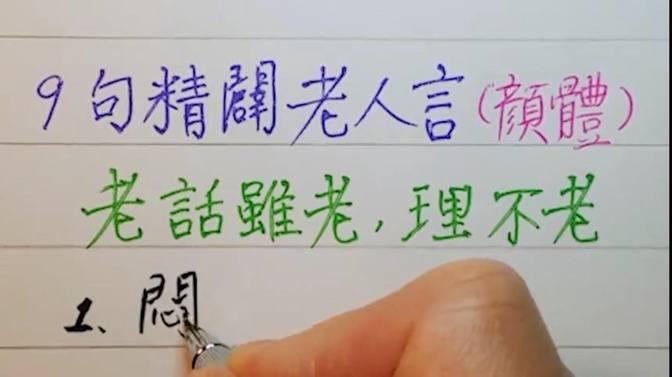 9句精闢老人言(顏體)
老話雖老,理不老
1、悶